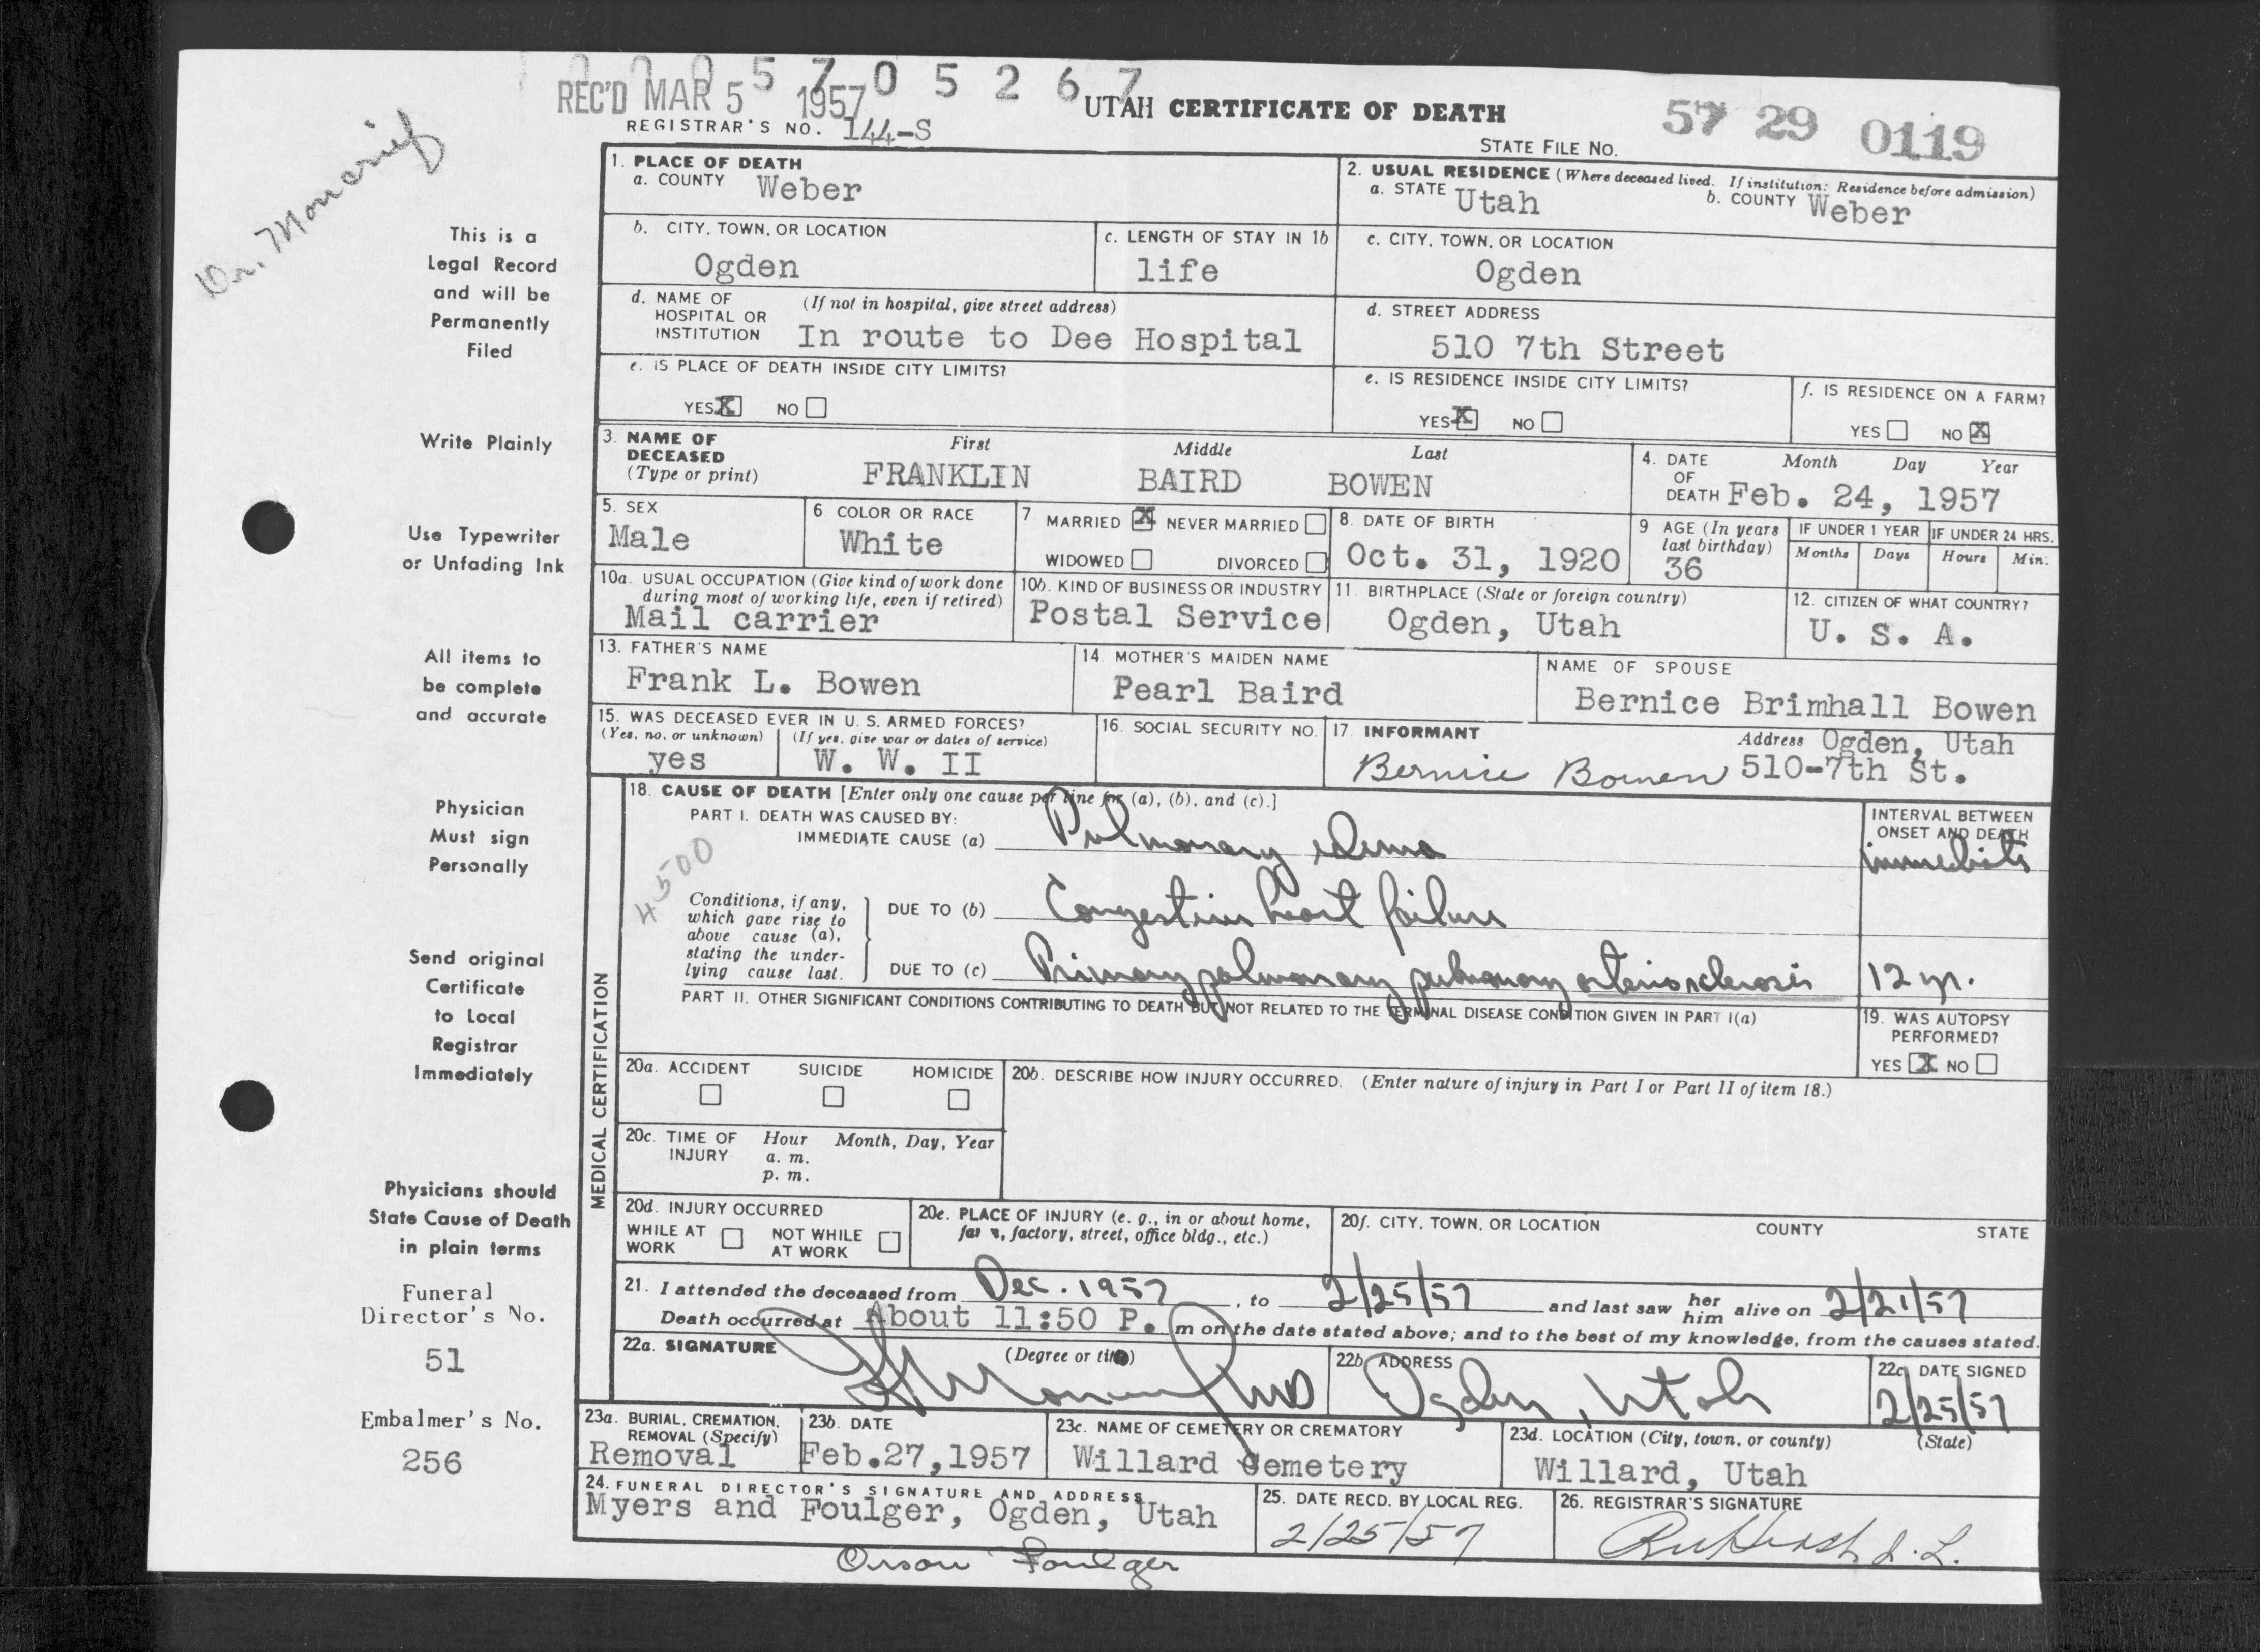 REC'D MAR 5 1957
5 7 0 5 2 6 7
UTAH CERTIFICATE OF DEATH
57 29 0119
REGISTRAR'S NO. 144-S
STATE FILE NO.
Dr. Moncrief
This is a
Legal Record
and will be
Permanently
Filed
Write Plainly
Use Typewriter
or Unfading Ink
All items to
be complete
and accurate
Physician
Must sign
Personally
Send original
Certificate
to Local
Registrar
Immediately
Physicians should
State Cause of Death
in plain terms
Funeral
Director's No.
51
Embalmer's No.
256
1. PLACE OF DEATH
a. COUNTY Weber
2. USUAL RESIDENCE (Where deceased lived. If institution: Residence before admission)
a. STATE Utah b. COUNTY Weber
b. CITY, TOWN, OR LOCATION
Ogden
c. LENGTH OF STAY IN 1b
life
c. CITY, TOWN, OR LOCATION
Ogden
d. NAME OF (If not in hospital, give street address)
HOSPITAL OR
INSTITUTION In route to Dee Hospital
d. STREET ADDRESS
510 7th Street
e. IS PLACE OF DEATH INSIDE CITY LIMITS?
YES X NO
e. IS RESIDENCE INSIDE CITY LIMITS?
YES X NO
f. IS RESIDENCE ON A FARM?
YES NO X
3. NAME OF DECEASED (Type or print)
First Middle Last
FRANKLIN BAIRD BOWEN
4. DATE OF DEATH Month Day Year
Feb. 24, 1957
5. SEX
Male
6 COLOR OR RACE
White
7 MARRIED X NEVER MARRIED
WIDOWED DIVORCED
8. DATE OF BIRTH
Oct. 31, 1920
9 AGE (In years last birthday)
36
IF UNDER 1 YEAR IF UNDER 24 HRS.
Months Days Hours Min.
10a. USUAL OCCUPATION (Give kind of work done
during most of working life, even if retired)
Mail carrier
10b. KIND OF BUSINESS OR INDUSTRY
Postal Service
11. BIRTHPLACE (State or foreign country)
Ogden, Utah
12. CITIZEN OF WHAT COUNTRY?
U. S. A.
13. FATHER'S NAME
Frank L. Bowen
14. MOTHER'S MAIDEN NAME
Pearl Baird
NAME OF SPOUSE
Bernice Brimhall Bowen
15. WAS DECEASED EVER IN U. S. ARMED FORCES?
(Yes, no, or unknown) (If yes, give war or dates of service)
yes W. W. II
16. SOCIAL SECURITY NO.
17. INFORMANT Address Ogden, Utah
Bernice Bowen 510-7th St.
MEDICAL CERTIFICATION
18. CAUSE OF DEATH [Enter only one cause per line for (a), (b), and (c).]
PART I. DEATH WAS CAUSED BY:
IMMEDIATE CAUSE (a) Pulmonary edema
INTERVAL BETWEEN
ONSET AND DEATH
immediate
4500
Conditions, if any,
which gave rise to
above cause (a),
stating the under-
lying cause last.
DUE TO (b) Congestive heart failure
DUE TO (c) Primary pulmonary pulmonary arteriosclerosis
12 yr.
PART II. OTHER SIGNIFICANT CONDITIONS CONTRIBUTING TO DEATH BUT NOT RELATED TO THE TERMINAL DISEASE CONDITION GIVEN IN PART I(a)
19. WAS AUTOPSY
PERFORMED?
YES X NO
20a. ACCIDENT SUICIDE HOMICIDE
20b. DESCRIBE HOW INJURY OCCURRED. (Enter nature of injury in Part I or Part II of item 18.)
20c. TIME OF INJURY Hour Month, Day, Year
a. m.
p. m.
20d. INJURY OCCURRED
WHILE AT WORK NOT WHILE AT WORK
20e. PLACE OF INJURY (e. g., in or about home,
farm, factory, street, office bldg., etc.)
20f. CITY, TOWN, OR LOCATION COUNTY STATE
21. I attended the deceased from Dec. 1957, to 2/25/57 and last saw her him alive on 2/21/57
Death occurred at About 11:50 P. m on the date stated above; and to the best of my knowledge, from the causes stated.
22a. SIGNATURE (Degree or title)
MD
22b. ADDRESS
Ogden, Utah
22c. DATE SIGNED
2/25/57
23a. BURIAL, CREMATION,
REMOVAL (Specify)
Removal
23b. DATE
Feb.27,1957
23c. NAME OF CEMETERY OR CREMATORY
Willard Cemetery
23d. LOCATION (City, town, or county) (State)
Willard, Utah
24. FUNERAL DIRECTOR'S SIGNATURE AND ADDRESS
Myers and Foulger, Ogden, Utah
Orson Foulger
25. DATE RECD. BY LOCAL REG.
2/25/57
26. REGISTRAR'S SIGNATURE